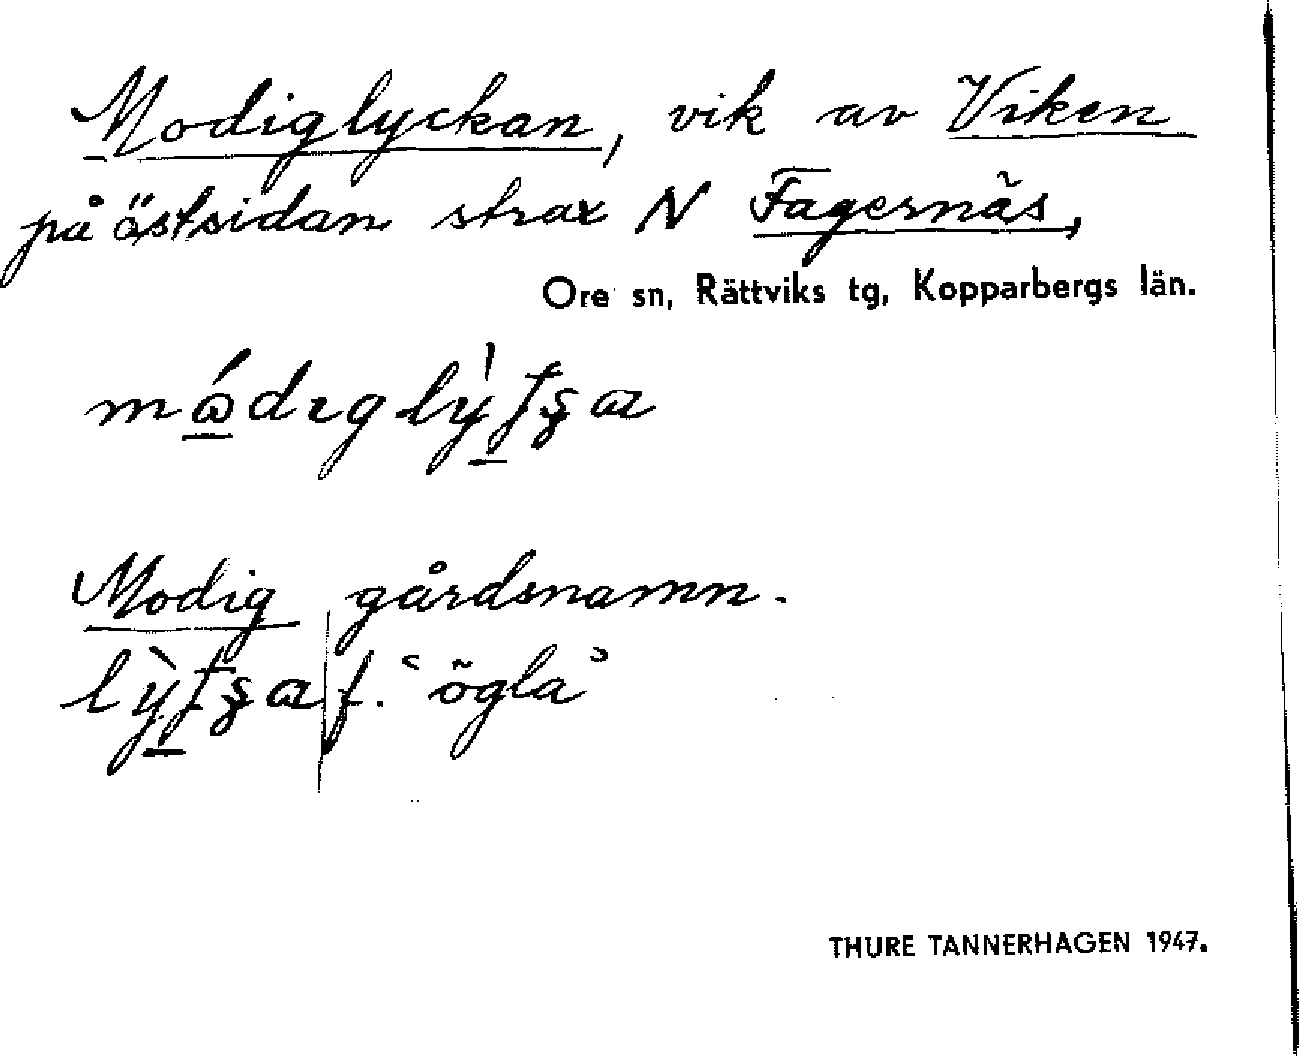 Modiglyckan, vik av Viken
på östsidan strax N Fagernäs,
Ore sn, Rättviks tg, Kopparbergs län.
Modig gårdsnamn.
f. ‘ögla’
THURE TANNERHAGEN 1947.